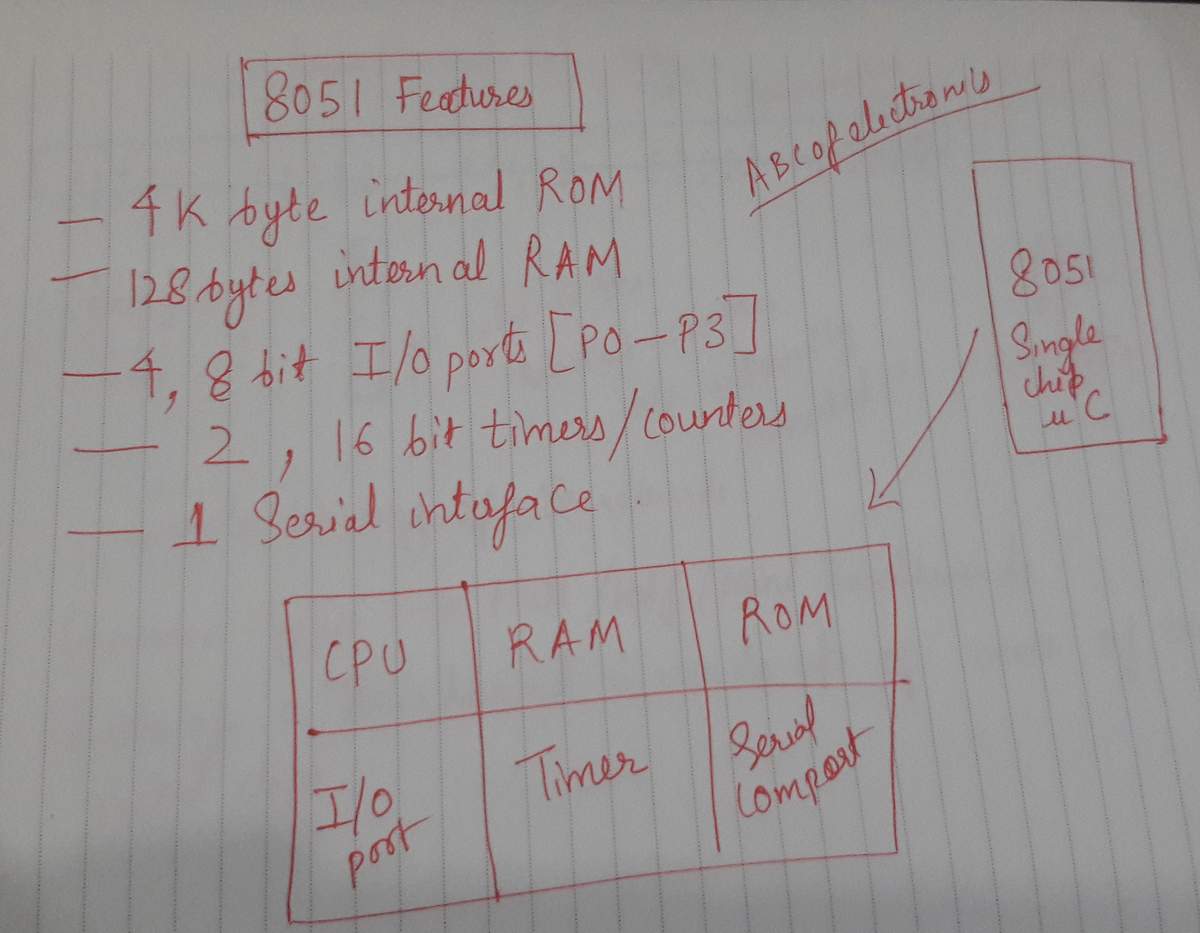 8051 Features
ABC of electronics
- 4K byte internal ROM
- 128 bytes internal RAM
- 4, 8 bit I/O ports [P0-P3]
- 2, 16 bit timers/counters
- 1 Serial interface.
8051
Single
chip
uC
CPU
RAM
ROM
I/O
port
Timer
Serial
Comport